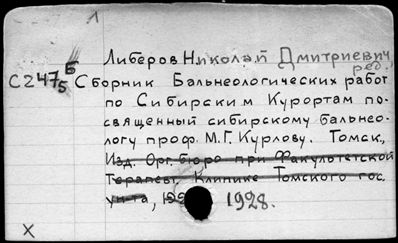 1
Либеров Николай Дмитриевич,
ред.
С2475Б Сборник Бальнеологических работ
по Сибирским Курортам по-
священный сибирскому бальнео-
логу проф. М.Г. Курлову. Томск,
Изд. Орг. бюро при Факультетской
Терапевт. Клинике Томского гос.
ун-та, 1928.
X